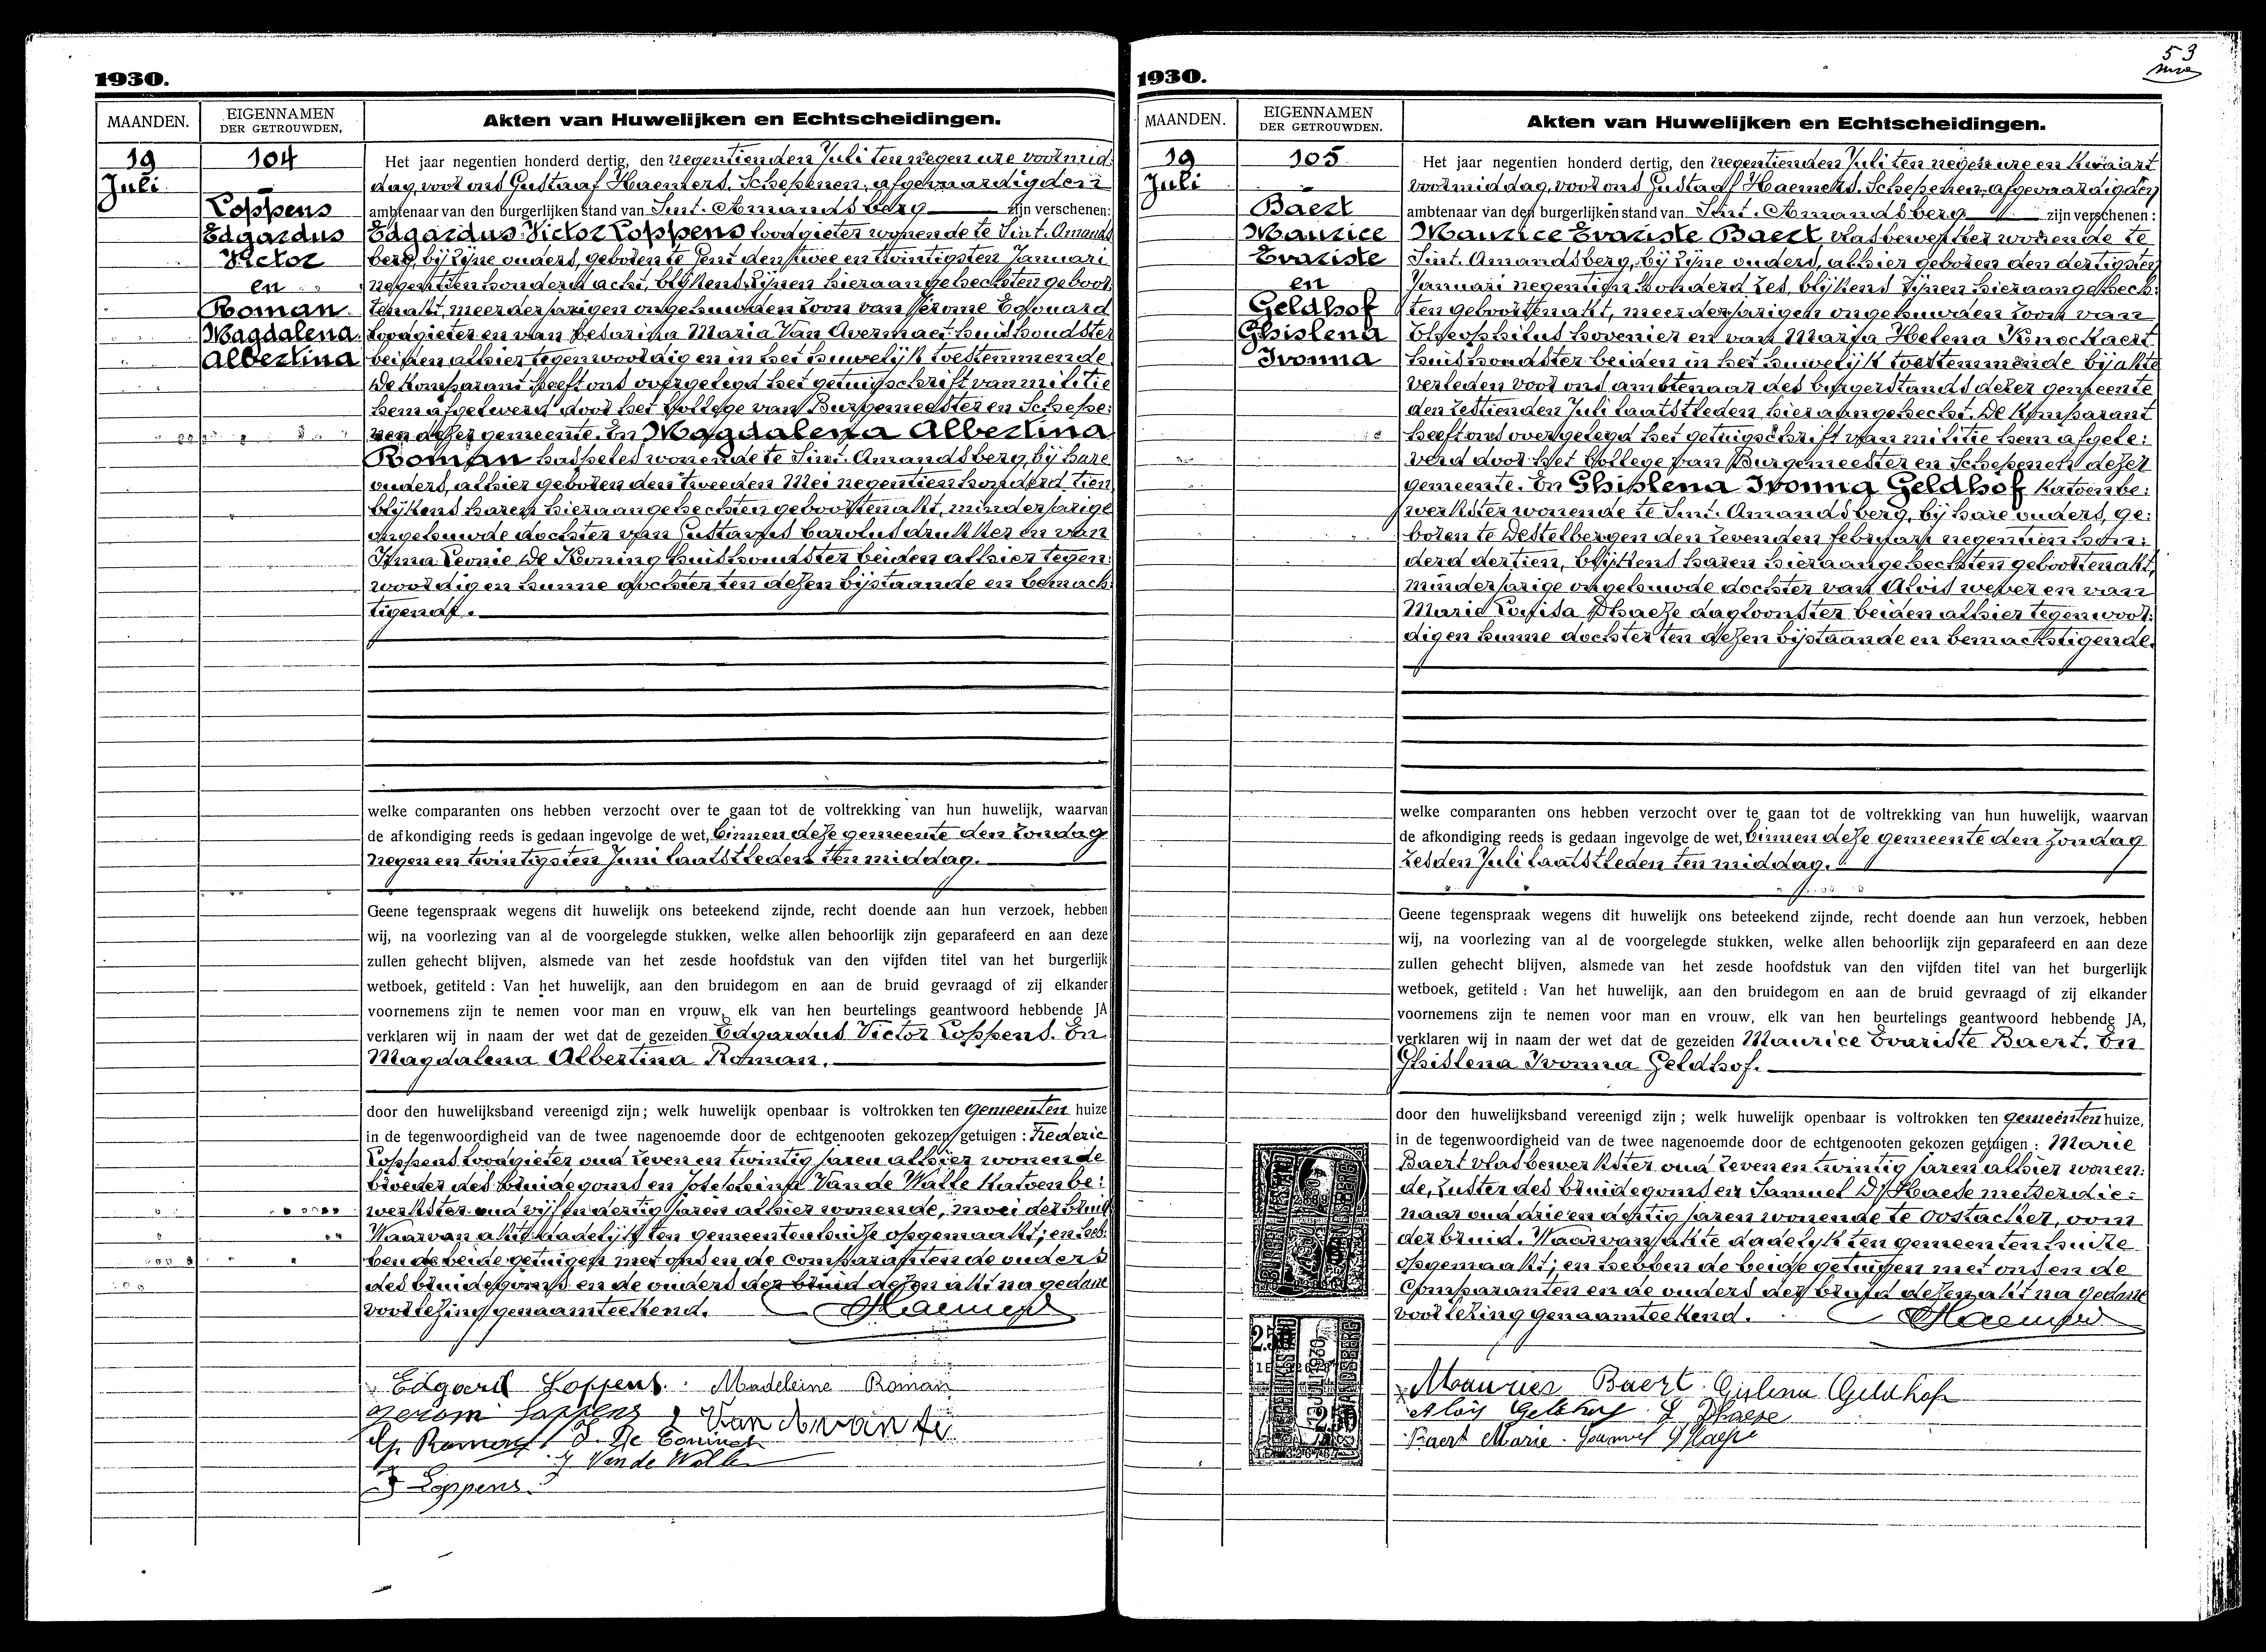 1930.
MAANDEN.
EIGENNAMEN
DER GETROUWDEN.
Akten van Huwelijken en Echtscheidingen.
19
Juli
104
Loppens
Edgardus
Victor
en
Roman
Magdalena
Albertina
Het jaar negentien honderd dertig, den negentienden Juli ten negen ure voormid:
dag, voor ons Gustaaf Haemers, Schepenen, afgevaardigden
ambtenaar van den burgerlijken stand van Sint. Amandsberg zijn verschenen:
Edgardus Victor Loppens loodgieter wonende te Sint. Amands
berg, bij zijne ouders, geboren te Gent den twee en twintigsten Januari
negentien honderd acht, blijkens zijnen hieraangehechten geboor:
teakt, meerderjarigen ongehuwden zoon van Jerome Edouard
loodgieter en van Maria Van Avermaet huishoudster
beiden alhier tegenwoordig en in het huwelijk toestemmende.
De Komparant heeft ons overgelegd het getuigschrift van militie
hem afgeleverd door het Kollege van Burgemeester en Schepe:
nen dezer gemeente. En Magdalena Albertina
Roman haspeles wonende te Sint. Amandsberg, bij hare
ouders, alhier geboren den tweeden Mei negentien honderd tien
blijkens haren hieraangehechten geboortenakt, minderjarige
ongehuwde dochter van Gustavus Carolus drukker en van
Irma Leonie De Koning huishoudster beiden alhier tegen:
woordig en hunne dochter ten dezen bijstaande en bemach:
tigend.
welke comparanten ons hebben verzocht over te gaan tot de voltrekking van hun huwelijk, waarvan
de afkondiging reeds is gedaan ingevolge de wet, binnen deze gemeente den Zondag
negen en twintigsten Juni laatstleden ten middag.
Geene tegenspraak wegens dit huwelijk ons beteekend zijnde, recht doende aan hun verzoek, hebben
wij, na voorlezing van al de voorgelegde stukken, welke allen behoorlijk zijn geparafeerd en aan deze
zullen gehecht blijven, alsmede van het zesde hoofdstuk van den vijfden titel van het burgerlijk
wetboek, getiteld : Van het huwelijk, aan den bruidegom en aan de bruid gevraagd of zij elkander
voornemens zijn te nemen voor man en vrouw, elk van hen beurtelings geantwoord hebbende JA
verklaren wij in naam der wet dat de gezeiden Edgardus Victor Loppens. En
Magdalena Albertina Roman.
door den huwelijksband vereenigd zijn ; welk huwelijk openbaar is voltrokken ten Gemeenten huize
in de tegenwoordigheid van de twee nagenoemde door de echtgenooten gekozen getuigen : Frederic
Loppens loodgieter oud zeven en twintig jaren alhier wonende
broeder des bruidegoms en Van de Walle Katoenbe:
werkster oud vijf en dertig jaren alhier wonende, moei der bruid
Waarvan akte dadelijk ten gemeentenhuize opgemaakt; en heb:
ben de beide getuigen met ons en de comparanten de ouders
des bruidegoms en de ouders der bruid dezen akt na gedane
voorlezing genaamteekend. Haemers
Edgard Loppens. Madeleine Roman
Jerom Loppens
G. Roman I. De Coninck
J Van de Walle
F Loppens
1930.
53
MAANDEN.
EIGENNAMEN
DER GETROUWDEN.
Akten van Huwelijken en Echtscheidingen.
19
Juli
105
Baert
Maurice
Evariste
en
Geldhof
Ghislena
Ivonna
Het jaar negentien honderd dertig, den negentienden Juli ten negen ure en kwaart
voormiddag, voor ons Gustaaf Haemers, Schepenen, afgevaardigden
ambtenaar van den burgerlijken stand van Sint. Amandsberg zijn verschenen :
Maurice Evariste Baert vlasbewerker wonende te
Sint. Amandsberg, bij zijne ouders, alhier geboren den dertigsten
Januari negentien honderd zes, blijkens zijnen hieraangehech:
ten geboortenakt, meerderjarigen ongehuwden zoon van
Theophilus hovenier en van Maria Helena Knockaert
huishoudster beiden in het huwelijk toestemmende bij akte
verleden voor ons ambtenaar des burgerstands dezer gemeente
den zestienden Juli laatstleden, hieraangehecht. De Komparant
heeft ons overgelegd het getuigschrift van militie hem afgele:
verd door het Kollege van Burgemeester en Schepenen dezer
gemeente. En Ghislena Ivonna Geldhof Katoenbe:
werkster wonende te Sint. Amandsberg, bij hare ouders, ge:
boren te Destelbergen den zevenden februari negentien hon:
derd dertien, blijkens haren hieraangehechten geboortenakt,
minderjarige ongehuwde dochter van Alois wever en van
Marie Dhaeze dagloonster beiden alhier tegenwoor:
digen hunne dochter ten dezen bijstaande en bemachtigende.
welke comparanten ons hebben verzocht over te gaan tot de voltrekking van hun huwelijk, waarvan
de afkondiging reeds is gedaan ingevolge de wet, binnen deze gemeente den Zondag
zesden Juli laatstleden ten middag.
Geene tegenspraak wegens dit huwelijk ons beteekend zijnde, recht doende aan hun verzoek, hebben
wij, na voorlezing van al de voorgelegde stukken, welke allen behoorlijk zijn geparafeerd en aan deze
zullen gehecht blijven, alsmede van het zesde hoofdstuk van den vijfden titel van het burgerlijk
wetboek, getiteld : Van het huwelijk, aan den bruidegom en aan de bruid gevraagd of zij elkander
voornemens zijn te nemen voor man en vrouw, elk van hen beurtelings geantwoord hebbende JA,
verklaren wij in naam der wet dat de gezeiden Maurice Evariste Baert. En
Ghislena Ivonna Geldhof.
door den huwelijksband vereenigd zijn ; welk huwelijk openbaar is voltrokken ten gemeenten huize,
in de tegenwoordigheid van de twee nagenoemde door de echtgenooten gekozen getuigen : Marie
Baert vlasbewerkster oud zeven en twintig jaren alhier wonen:
de, zuster des bruidegoms en Samuel D'Haese metserdie:
naar oud drie en dertig jaren wonende te Oostacker, oom
der bruid. Waarvan akte dadelyk ten gemeentenhuize
opgemaakt; en hebben de beide getuigen met ons en de
Comparanten en de ouders der bruid dezen akt na gedane
voorlezing genaamteekend. Haemers
Maurice Baert Gislena Geldhof
Aloïs Geldhof L Dhaese
Baert Marie. Samuel D'Haese